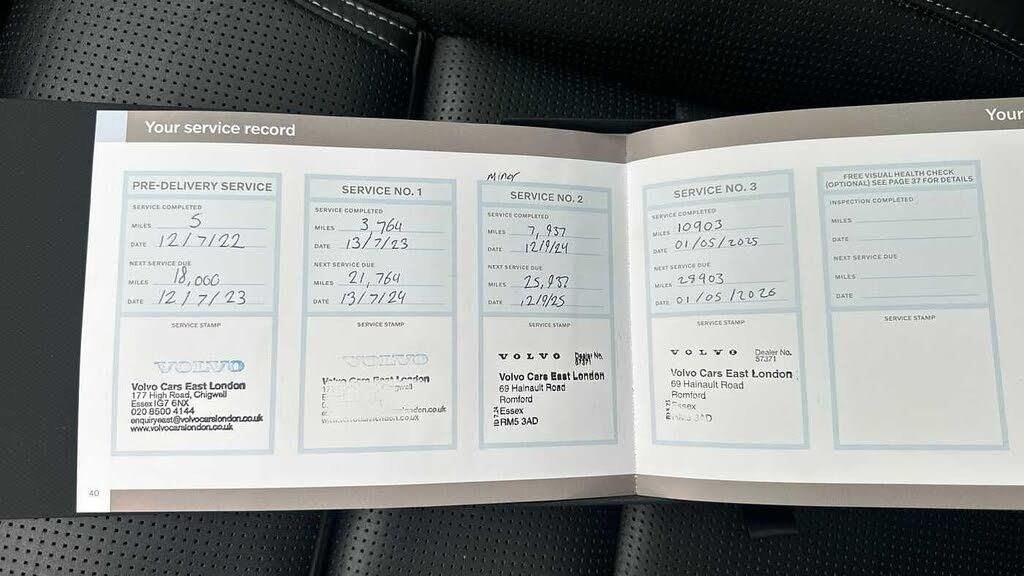 Your service record
Your
PRE-DELIVERY SERVICE
SERVICE COMPLETED
MILES 5
DATE 12/7/22
NEXT SERVICE DUE
MILES 18,000
DATE 12/7/23
SERVICE STAMP
VOLVO
Volvo Cars East London
177 High Road, Chigwell
Essex IG7 6NX
020 8500 4144
enquiryeast@volvocarslondon.co.uk
www.volvocarslondon.co.uk
SERVICE NO. 1
SERVICE COMPLETED
MILES 3,764
DATE 13/7/23
NEXT SERVICE DUE
MILES 21,764
DATE 13/7/24
SERVICE STAMP
VOLVO
Volvo Cars East London
Minor
SERVICE NO. 2
SERVICE COMPLETED
MILES 7,937
DATE 12/9/24
NEXT SERVICE DUE
MILES 25,937
DATE 12/9/25
SERVICE STAMP
VOLVO Dealer No.
57371
Volvo Cars East London
69 Hainault Road
Romford
Essex
RM5 3AD
SERVICE NO. 3
SERVICE COMPLETED
MILES 10903
DATE 01/05/2025
NEXT SERVICE DUE
MILES 28903
DATE 01/05/2026
SERVICE STAMP
VOLVO Dealer No.
57371
Volvo Cars East London
69 Hainault Road
Romford
Essex
3AD
FREE VISUAL HEALTH CHECK
(OPTIONAL) SEE PAGE 37 FOR DETAILS
INSPECTION COMPLETED
MILES
DATE
NEXT SERVICE DUE
MILES
DATE
SERVICE STAMP
40